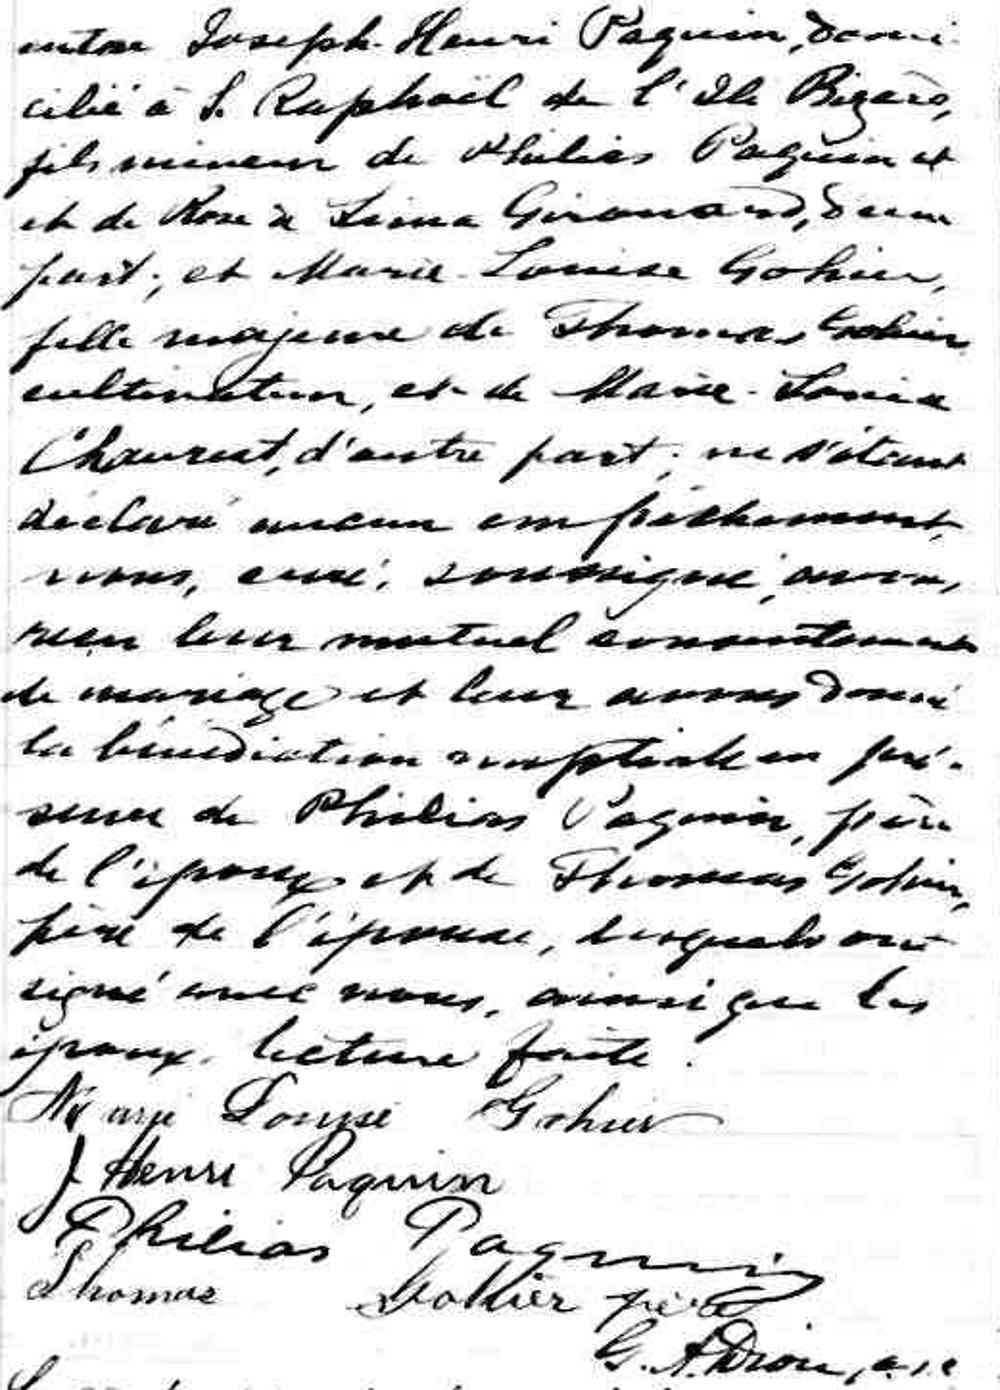 entre Joseph-Henri Paquin, domi-
cilié à S. Raphaël de l'Ile Bizard,
fils mineur de Philias Paquin et
et de Rose de Lima Girouard, d'une
part; et Marie-Louise Gohier,
fille majeure de Thomas Gohier
cultivateur, et de Marie-Louise
Chaurest, d'autre part; ne s'étant
déclaré aucun empêchement,
nous, curé, soussigné, avons,
reçu leur mutuel consentement
de mariage et leur avons donné
la bénédiction nuptiale en pré-
sence de Philias Paquin, père
de l'époux et de Thomas Gohier,
père de l'épouse, lesquels ont
signé avec nous, ainsi que les
époux. Lecture faite.
Marie Louise Gohier
J Henri Paquin
Philias Paquin
Thomas Gohier père
G. A. Dion,